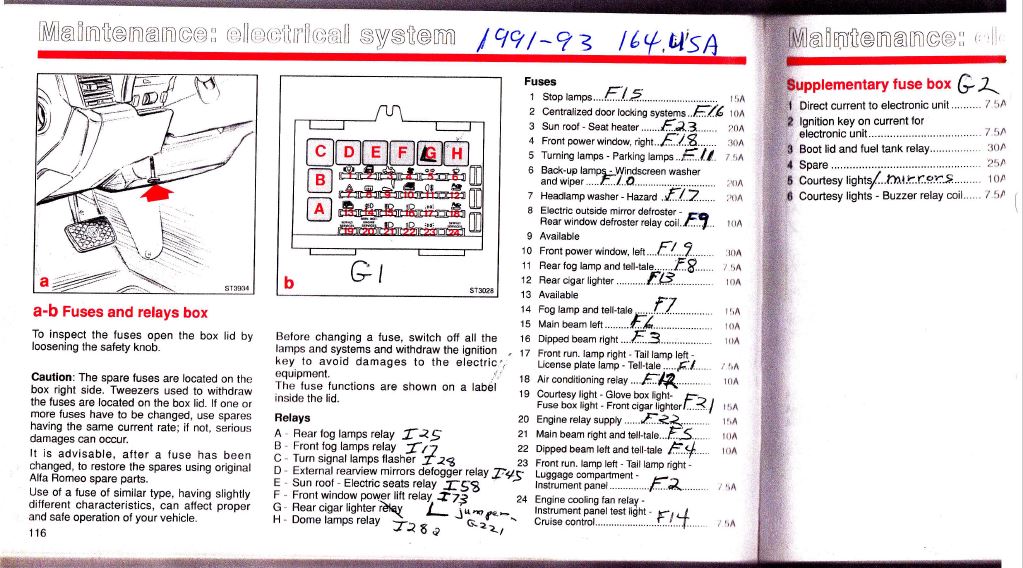 Maintenance: electrical system 1991-93 164.USA
a
ST3934
C D E F G H
B
A
1 2 3 4 5 6
7 8 9 10 11 12
13 14 15 16 17 18
19 20 21 22 23 24
G1
b
ST3028
a-b Fuses and relays box
To inspect the fuses open the box lid by
loosening the safety knob.
Caution: The spare fuses are located on the
box right side. Tweezers used to withdraw
the fuses are located on the box lid. If one or
more fuses have to be changed, use spares
having the same current rate; if not, serious
damages can occur.
It is advisable, after a fuse has been
changed, to restore the spares using original
Alfa Romeo spare parts.
Use of a fuse of similar type, having slightly
different characteristics, can affect proper
and safe operation of your vehicle.
116
Before changing a fuse, switch off all the
lamps and systems and withdraw the ignition
key to avoid damages to the electric
equipment.
The fuse functions are shown on a label
inside the lid.
Relays
A - Rear fog lamps relay I25
B - Front fog lamps relay I17
C - Turn signal lamps flasher I28
D - External rearview mirrors defogger relay I45
E - Sun roof - Electric seats relay I58
F - Front window power lift relay I73
G - Rear cigar lighter relay jumper-
G221
H - Dome lamps relay I28a
Fuses
1 Stop lamps F15 15A
2 Centralized door locking systems F16 10A
3 Sun roof - Seat heater F23 20A
4 Front power window, right F18 30A
5 Turning lamps - Parking lamps F11 7.5A
6 Back-up lamps - Windscreen washer
and wiper F10 20A
7 Headlamp washer - Hazard F17 20A
8 Electric outside mirror defroster -
Rear window defroster relay coil F9 10A
9 Available
10 Front power window, left F19 30A
11 Rear fog lamp and tell-tale F8 7.5A
12 Rear cigar lighter F13 10A
13 Available
14 Fog lamp and tell-tale F7 15A
15 Main beam left F6 10A
16 Dipped beam right F3 10A
17 Front run. lamp right - Tail lamp left -
License plate lamp - Tell-tale F1 7.5A
18 Air conditioning relay F12 10A
19 Courtesy light - Glove box light-
Fuse box light - Front cigar lighter F21 15A
20 Engine relay supply F22 15A
21 Main beam right and tell-tale F5 10A
22 Dipped beam left and tell-tale F4 10A
23 Front run. lamp left - Tail lamp right -
Luggage compartment -
Instrument panel F2 7.5A
24 Engine cooling fan relay -
Instrument panel test light -
Cruise control F14 7.5A
Maintenance: ele
Supplementary fuse box G2
1 Direct current to electronic unit 7.5A
2 Ignition key on current for
electronic unit 7.5A
3 Boot lid and fuel tank relay 30A
4 Spare 25A
5 Courtesy lights/mirrors 10A
6 Courtesy lights - Buzzer relay coil 7.5A